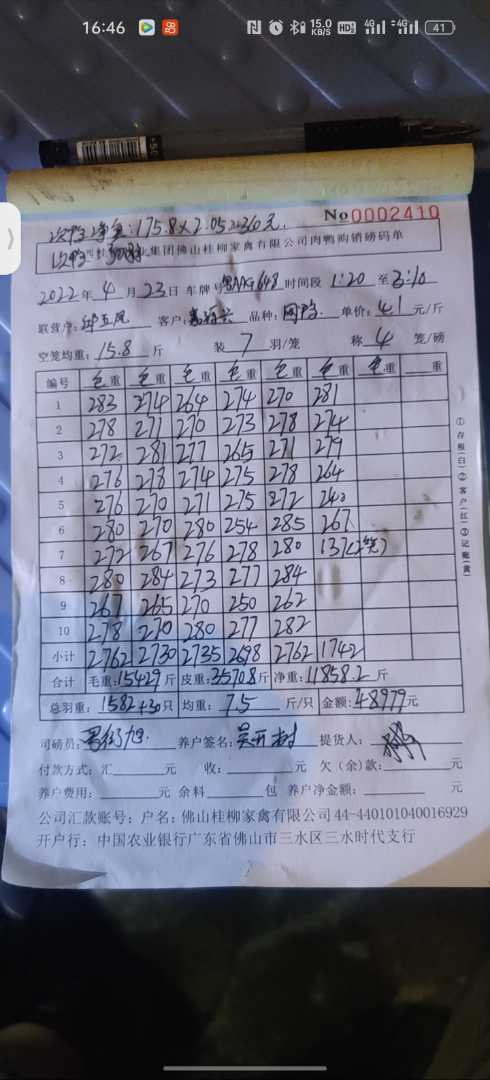 16:46 15.0 KB/S HD 4G 4G 41
次鸭净重:175.8×2.05=360元.
No 0002410
集团佛山桂柳家禽有限公司肉鸭购销磅码单
2022年4月23日 车牌号 648 时间段 1:20 至 3:10
联营户: 五凤 客户: 品种: 单价: 4.1 元/斤
空笼均重: 15.8 斤 装 7 羽/笼 称 4 笼/磅
编号 毛重 毛重 毛重 毛重 毛重 毛重 毛重 重
1 283 274 264 274 270 281
2 278 271 270 273 278 274
3 272 281 277 265 271 279
4 276 278 274 275 278 264
5 276 270 271 275 272 240
6 280 270 280 254 285 267
7 272 267 276 278 280 137(2笼)
8 280 284 273 277 284
9 267 265 270 250 262
10 278 270 280 277 282
小计 2762 2730 2735 2698 2762 1742
合计 毛重:15429斤 皮重:3570.8斤 净重:11858.2斤
总羽重: 1582+30只 均重: 7.5 斤/只 金额: 48979元
司磅员: 养户签名: 提货人:
付款方式: 汇 元 收: 元 欠(余)款: 元
养户费用: 元 余料 包 养户净金额: 元
公司汇款账号: 户名: 佛山桂柳家禽有限公司44-440101040016929
开户行: 中国农业银行广东省佛山市三水区三水时代支行
①存根(白)②客户(红)③记账(黄)